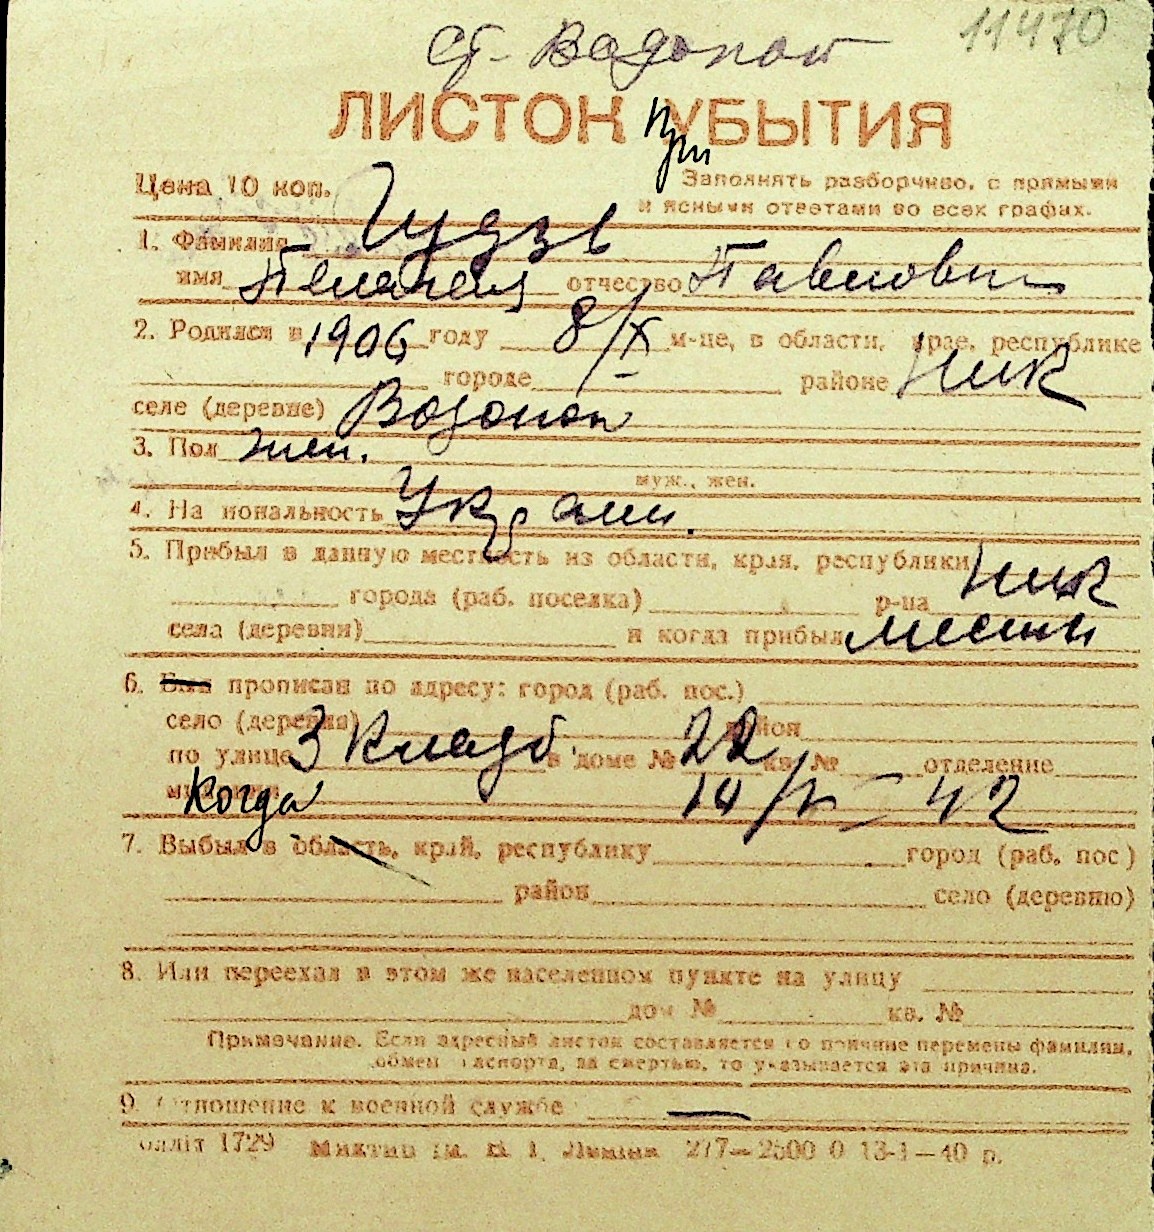 ст. Водопой 11470
ЛИСТОК УБЫТИЯ
При
Цена 10 коп. Заполнять разборчиво, с прямыми
и ясными ответами во всех графах.
1. Фамилия Гудзь
имя Пелагея отчество Павловн
2. Родился в 1906 году 8/X м-це, в области, крае, республике
городе районе Ник
селе (деревне) Водопой
3. Пол жен.
муж., жен.
4. Национальность Украин.
5. Прибыл в данную местность из области, края, республики Ник
города (раб. поселка) р-на
села (деревни) и когда прибыл местн
6. Был прописан по адресу: город (раб. пос.)
село (деревня) район
по улице 3 Кладб. в доме № 22 кв. № отделение
милиции Когда 14/IV - 42
7. Выбыл в область, край, республику город (раб. пос)
район село (деревню)
8. Или переехал в этом же населенном пункте на улицу
дом № кв. №
Примечание. Если адресный листок составляется по причине перемены фамилии,
обмен паспорта, за смертью, то указывается эта причина.
9. Отношение к военной службе —
1729 277—2500 0 13-1—40 р.